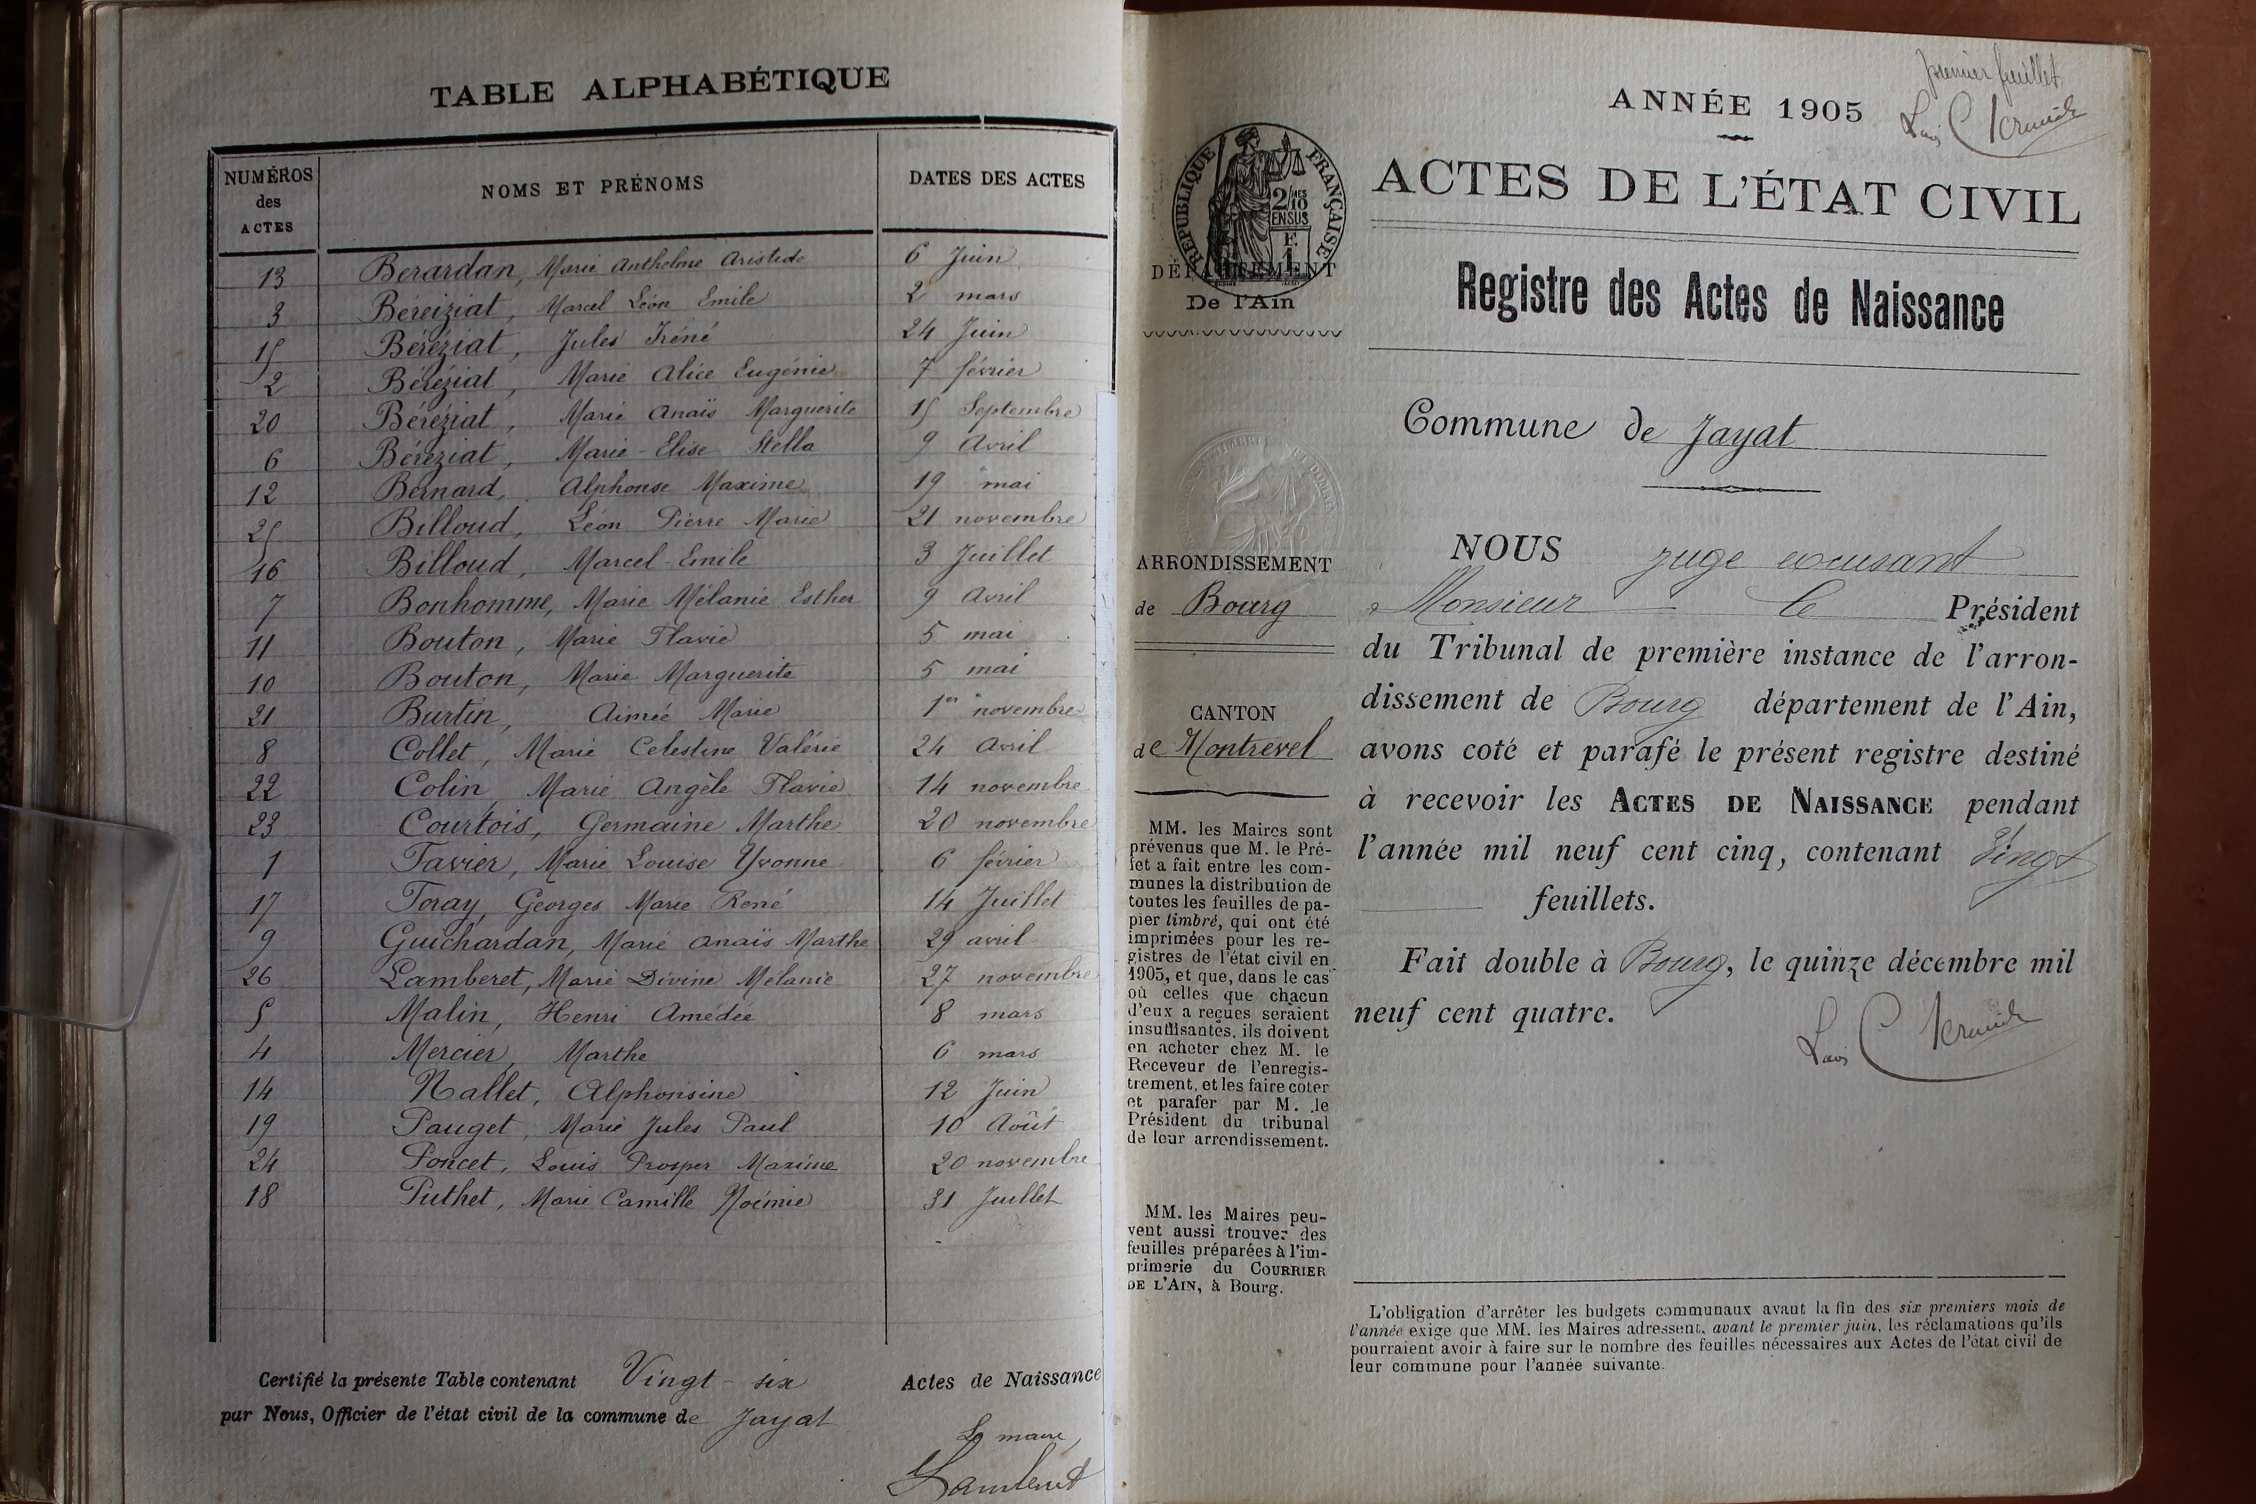 TABLE ALPHABÉTIQUE
NUMÉROS des ACTES NOMS ET PRÉNOMS DATES DES ACTES
13 Berardan, Marie Anthelme Aristide 6 Juin
3 Béreiziat, Marcel Léon Emile 2 mars
15 Béréziat, Jules Iréné 24 Juin
2 Béréziat, Marie Alice Eugénie 7 février
20 Béréziat, Marie Anaïs Marguerite 15 Septembre
6 Béréziat, Marie-Elise Stella 9 Avril
12 Bernard, Alphonse Maxime 19 mai
25 Billoud, Léon Pierre Marie 21 novembre
16 Billoud, Marcel-Emile 3 Juillet
7 Bonhomme, Marie Mélanie Esther 9 Avril
11 Bouton, Marie Flavie 5 mai
10 Bouton, Marie Marguerite 5 mai
21 Burtin, Aimée Marie 1er novembre
8 Collet, Marie Celestine Valérie 24 Avril
22 Colin, Marie Angèle Flavie 14 novembre
23 Courtois, Germaine Marthe 20 novembre
1 Favier, Marie Louise Yvonne 6 février
17 Foray, Georges Marie René 14 Juillet
9 Guichardan, Marie Anaïs Marthe 29 avril
26 Lamberet, Marie Divine Mélanie 27 novembre
5 Malin, Henri Amédée 8 mars
4 Mercier, Marthe 6 mars
14 Nallet, Alphonsine 12 Juin
19 Pauget, Marie Jules Paul 10 Août
24 Poncet, Louis Prosper Maxime 20 novembre
18 Puthet, Marie Camille Noémie 31 Juillet
Certifié la présente Table contenant Vingt-six Actes de Naissance
par Nous, Officier de l'état civil de la commune de Jayat
Le maire,
Lamberet
premier feuillet
ANNÉE 1905
ACTES DE L'ÉTAT CIVIL
RÉPUBLIQUE FRANÇAISE
2/10 MES
EN SUS
F.
1
DÉPARTEMENT
De l'Ain
Registre des Actes de Naissance
Commune de Jayat
ARRONDISSEMENT
de Bourg
CANTON
de Montrevel
MM. les Maires sont
prévenus que M. le Pré-
fet a fait entre les com-
munes la distribution de
toutes les feuilles de pa-
pier timbré, qui ont été
imprimées pour les re-
gistres de l'état civil en
1905, et que, dans le cas
où celles que chacun
d'eux a reçues seraient
insuffisantes, ils doivent
en acheter chez M. le
Receveur de l'enregis-
trement, et les faire coter
et parafer par M. le
Président du tribunal
de leur arrondissement.
MM. les Maires peu-
vent aussi trouver des
feuilles préparées à l'im-
primerie du COURRIER
DE L'AIN, à Bourg.
NOUS juge excusant
Monsieur le Président
du Tribunal de première instance de l'arron-
dissement de Bourg département de l'Ain,
avons coté et parafé le présent registre destiné
à recevoir les ACTES DE NAISSANCE pendant
l'année mil neuf cent cinq, contenant Vingt
feuillets.
Fait double à Bourg, le quinze décembre mil
neuf cent quatre.
L'obligation d'arrêter les budgets communaux avant la fin des six premiers mois de
l'année exige que MM. les Maires adressent, avant le premier juin, les réclamations qu'ils
pourraient avoir à faire sur le nombre des feuilles nécessaires aux Actes de l'état civil de
leur commune pour l'année suivante.